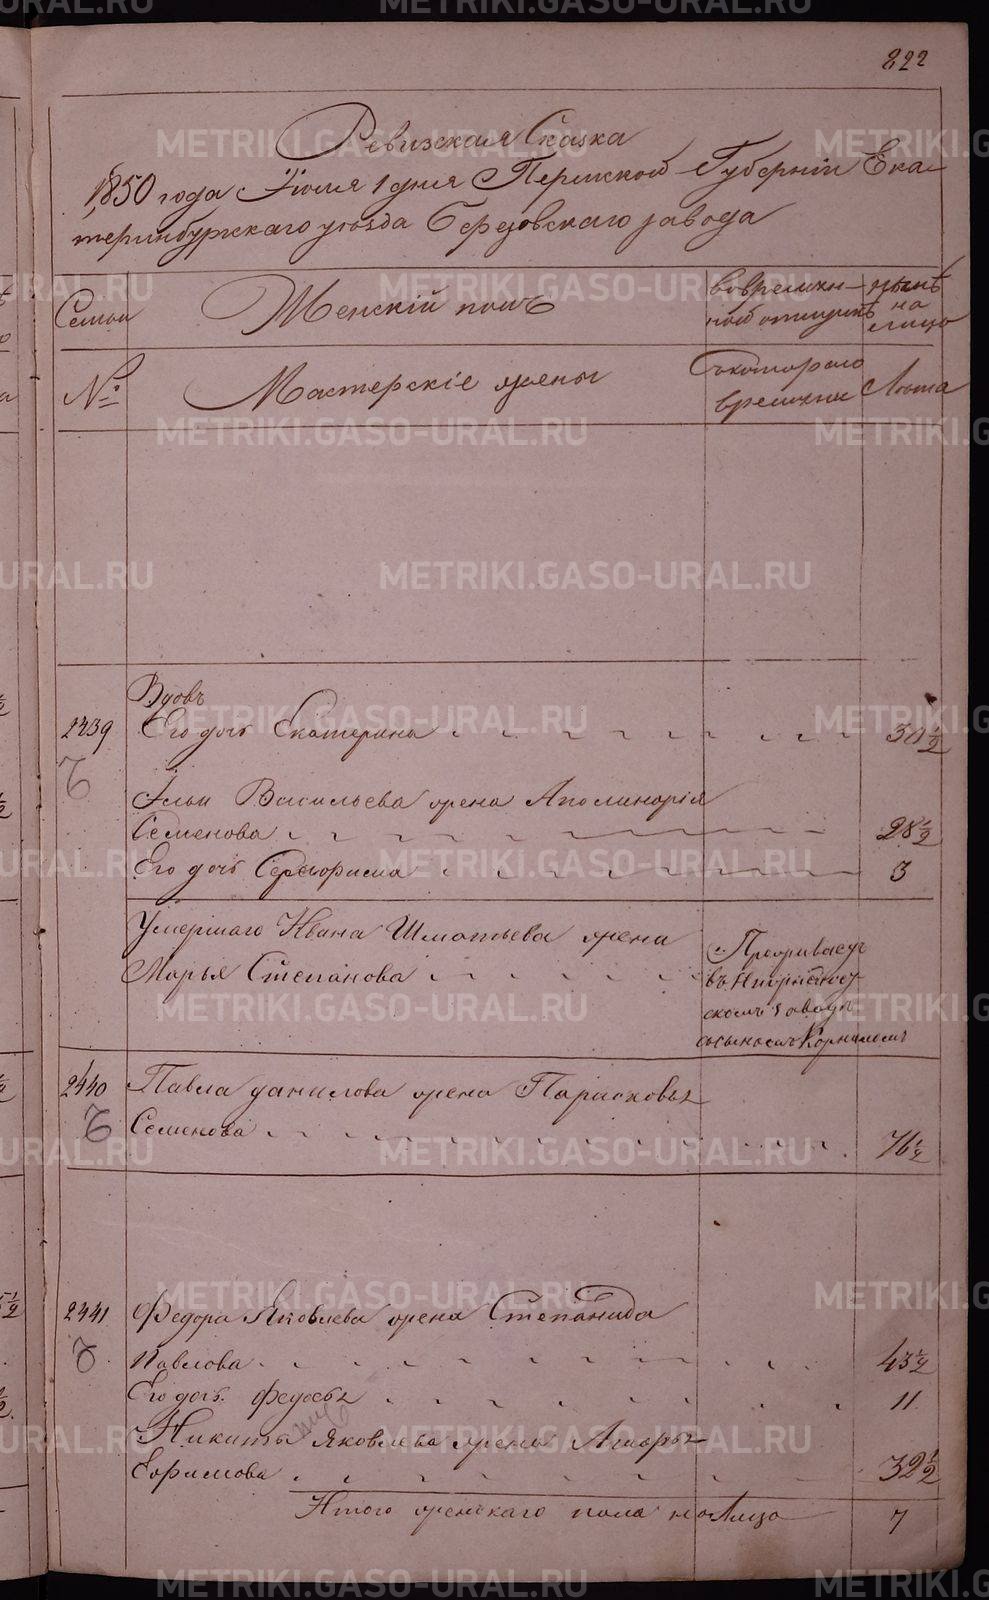 822
Ревизская Сказка
1850 года Июля 1 дня Пермской Губернiи Ека-
теринбургскаго уѣзда Березовскаго завода
Семьи
Женскiй полъ
во времян-
ной отлучкѣ
нынѣ
на
лицо
№
Мастерскiе жены
Съкотораго
времени
Лѣта
Вдовъ
2439 Его дочь Екатерина 30 1/2
Ильи Васильева жена Аполинарiя
Семенова 28 1/2
Его дочь 3
Умершаго Ивана жена
Марья Степанова
Проживаетъ
въ
скомъ заводѣ
съсыномъ Корниломъ
2440 Павла Данилова жена Парасковья
Семенова 76 1/2
2441 Федора Яковлева жена Степанида
Павлова 43 1/2
Его дочь Федосья 11
Никиты Яковлева жена
Ефимова 32 1/2
Итого женскаго пола на Лицо 7
METRIKI.GASO-URAL.RU